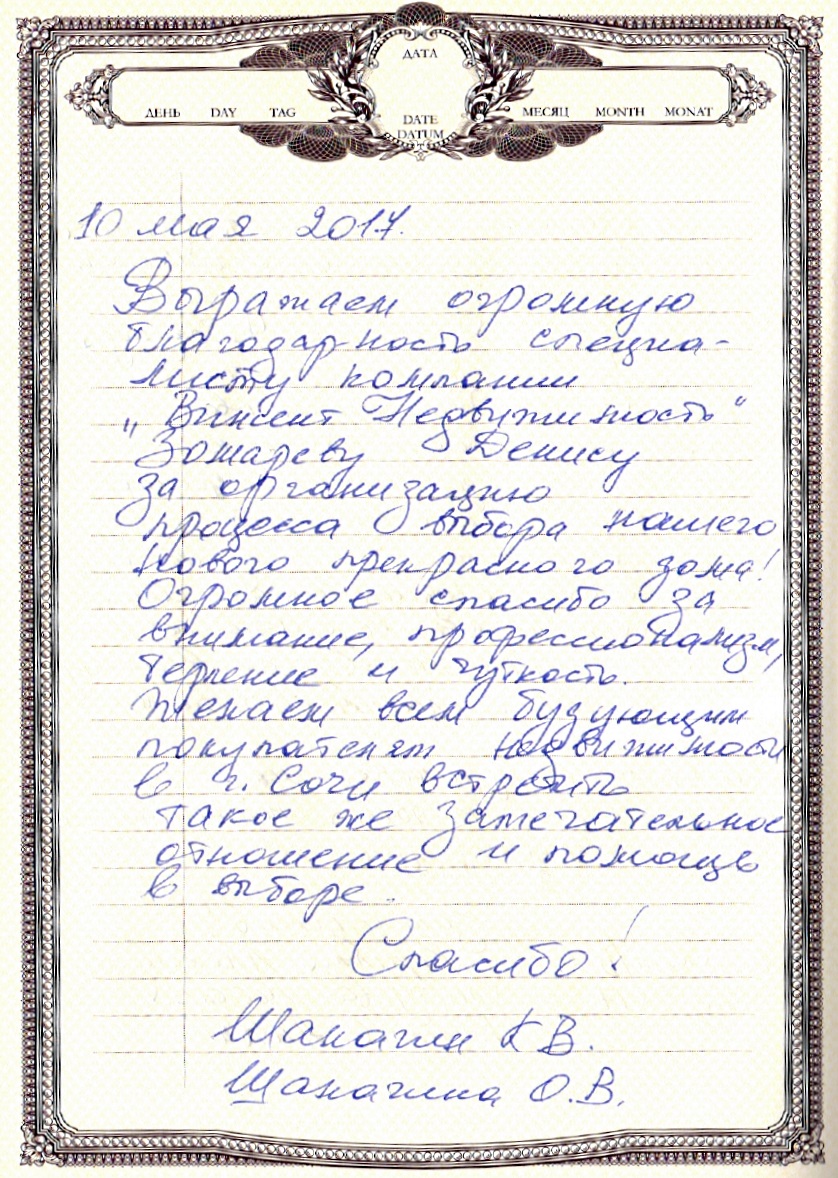 ДАТА
ДЕНЬ DAY TAG
DATE
DATUM
МЕСЯЦ MONTH MONAT
10 мая 2017.
Выражаем огромную
благодарность специа-
листу компании
„Винсент Недвижимость"
Денису
за организацию
процесса выбора нашего
нового прекрасного дома!
Огромное спасибо за
внимание, профессионализм,
терпение и чуткость.
Желаем всем будующим
покупателям недвижимости
в г. Сочи встретить
такое же замечательное
отношение и помощь
в выборе.
Спасибо!
К В.
О.В.